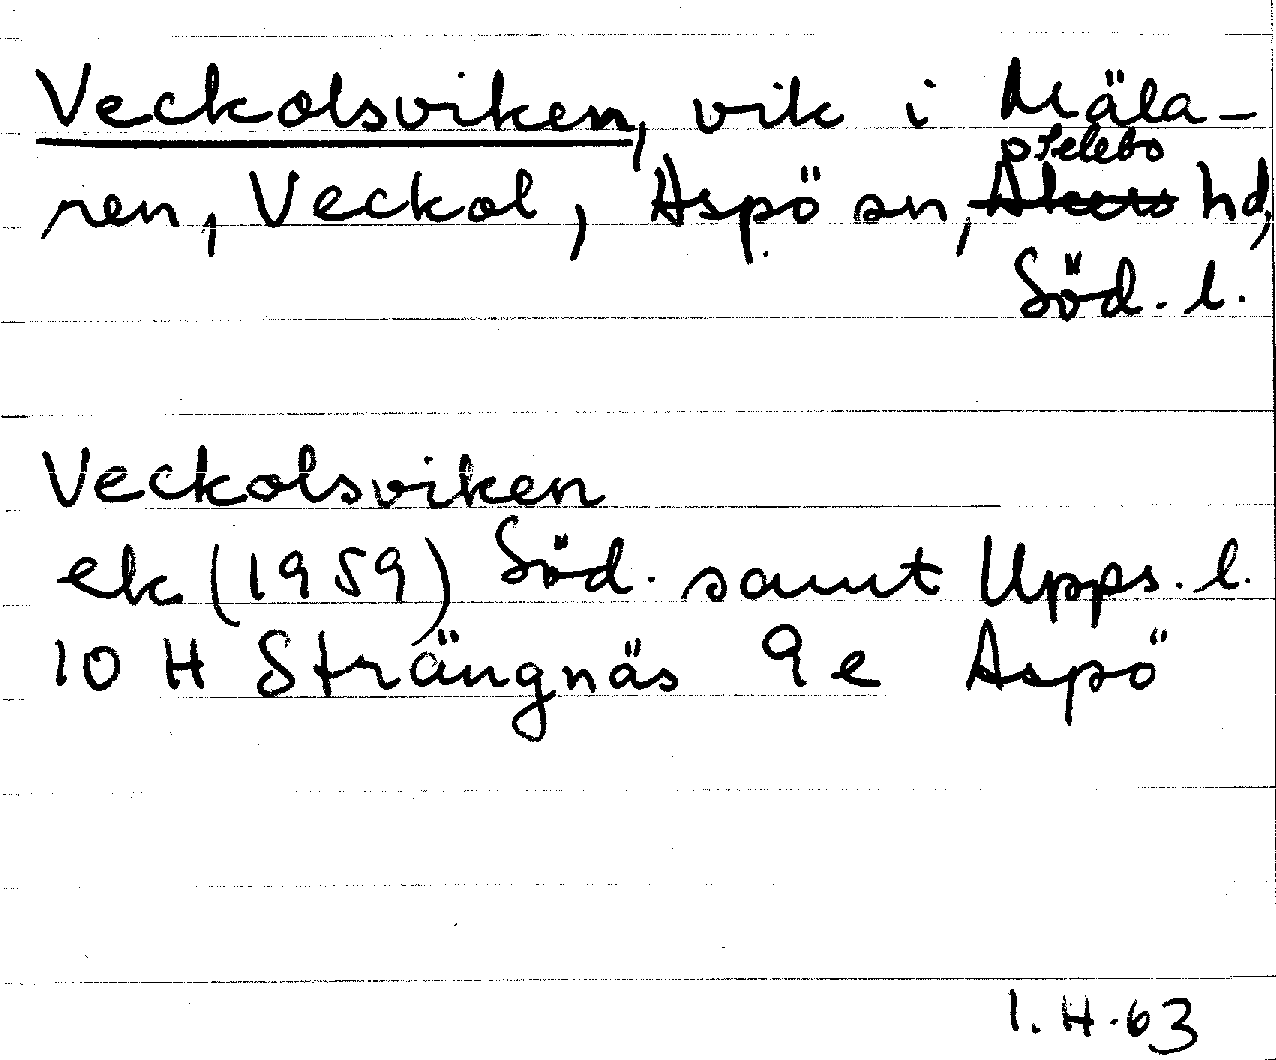 Veckolsviken, vik i Mäla-
selebo
ren, Veckol, Aspö sn, Akers hd,
Söd. l.
Veckolsviken
ek (1959) Söd. samt Upps. l.
10 H Strängnäs 9 e Aspö
I. H. 63